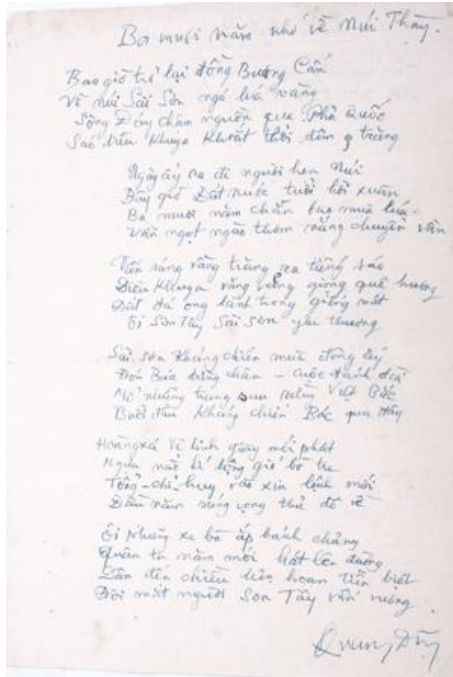 Ba mươi năm nhớ về Núi Thày.
Bao giờ trở lại đồng Bương Cấn
Về núi Sài Sơn ngó lúa vàng
Sông Đáy chậm nguồn qua Phủ Quốc
Sáo diều khuya khoắt thổi đêm trăng
Ngày ấy ra đi người hẹn Núi
Bây giờ Đất nước tuổi hồi xuân
Ba mươi năm chẵn bao mùa lúa
Vẫn ngọt ngào thơm nắng chuyển vần
Vẫn sáng vầng trăng tiếng sáo
Diều khuya văng vẳng giọng quê hương
Đất đá ong lành trong giếng mát
Ôi Sơn Tây Sài Sơn yêu thương
Sài Sơn Kháng chiến mùa đông ấy
Đón Bác dừng chân – cuộc đánh dài
Mở những trang sau rừng Việt Bắc
Buổi đầu Kháng chiến Bác qua đây
Hoàng xá Vệ binh giày mới phát
Ngựa nào hí lộng gió bờ tre
Tổng-chỉ-huy vào xin lệnh mới
Đầu năm súng vọng thủ đô về
Ôi Những xe bò ắp bánh chưng
Quân ta năm mới hát lên đường
Dân đến chiều liên hoan tiễn biệt
Đôi mắt người Sơn Tây vấn vương
Quang Dũng